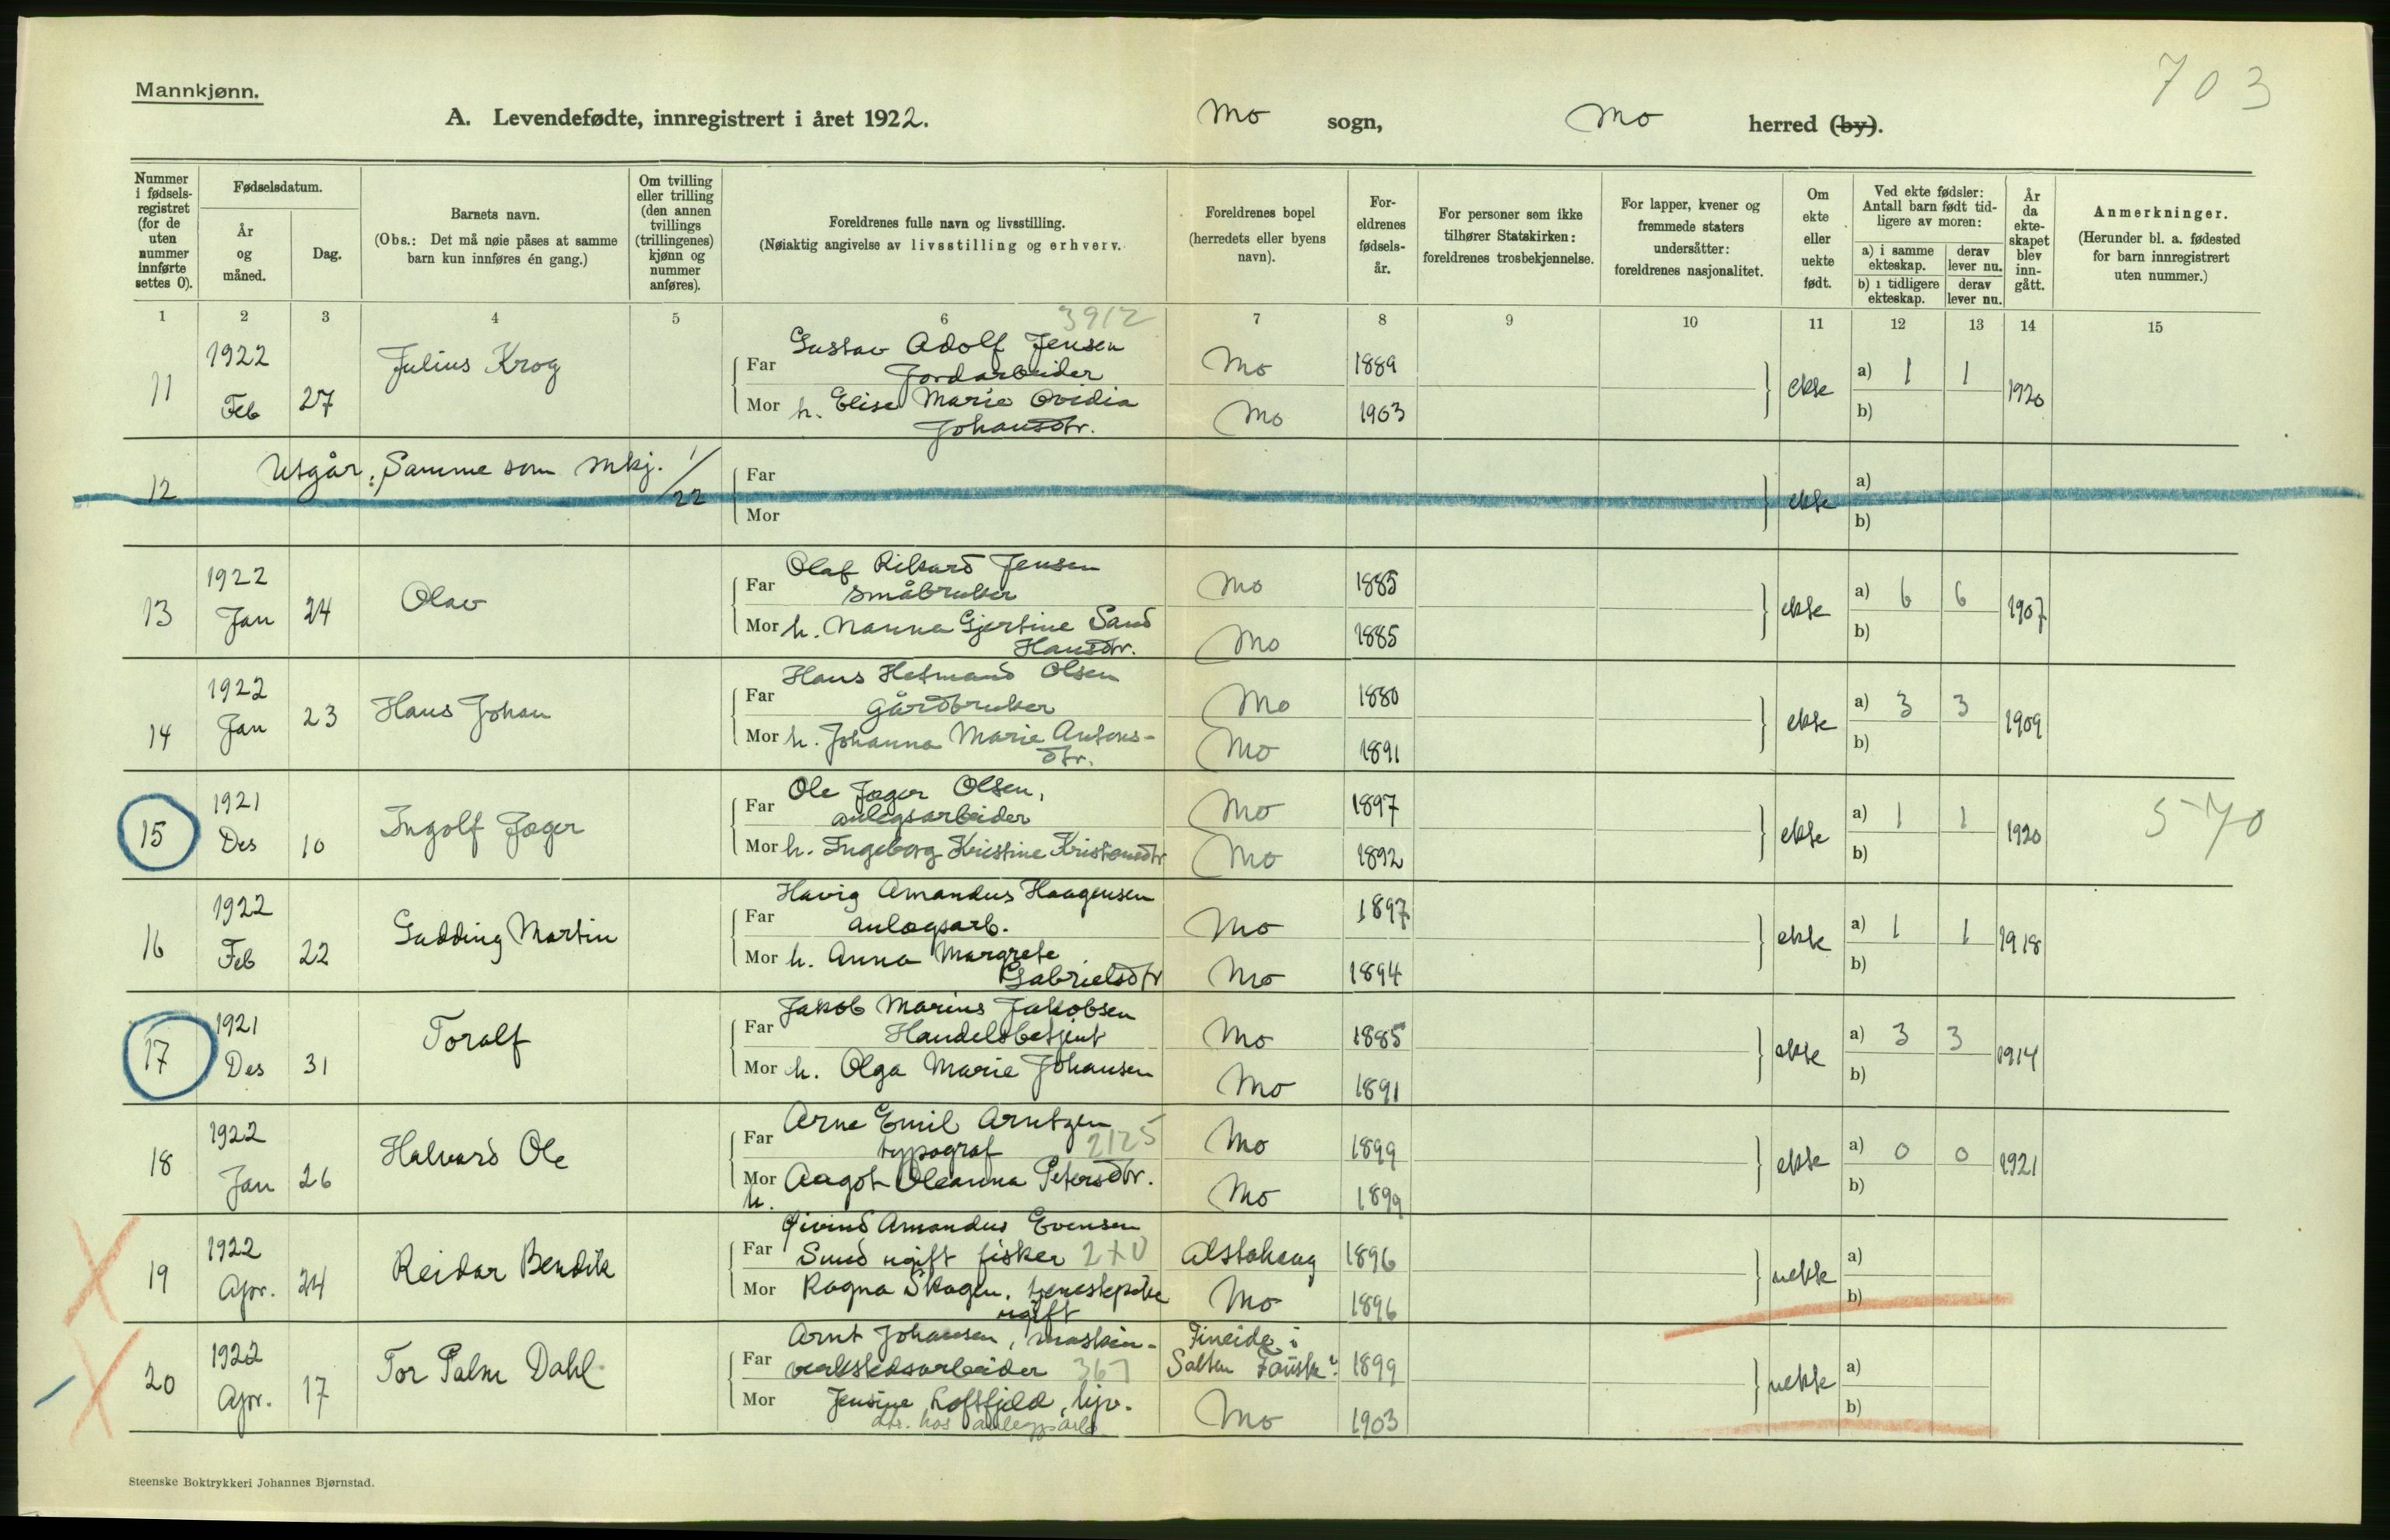 703
Mannkjønn.
A. Levendefødte, innregistrert i året 1922. Mo sogn, Mo herred (by).
Nummer i fødsels-registret (for de uten nummer innførte settes 0).
Fødselsdatum.
År og måned.
Dag.
Barnets navn.
(Obs.: Det må nøie påses at samme barn kun innføres én gang.)
Om tvilling eller trilling (den annen tvillings (trillingenes) kjønn og nummer anføres).
Foreldrenes fulle navn og livsstilling.
(Nøiaktig angivelse av livsstilling og erhverv.
Foreldrenes bopel (herredets eller byens navn).
For-eldrenes fødsels-år.
For personer som ikke tilhører Statskirken: foreldrenes trosbekjennelse.
For lapper, kvener og fremmede staters undersåtter: foreldrenes nasjonalitet.
Om ekte eller uekte født.
Ved ekte fødsler: Antall barn født tid-ligere av moren:
a) i samme ekteskap. derav lever nu.
b) i tidligere ekteskap. derav lever nu.
År da ekte-skapet blev inn-gått.
Anmerkninger.
(Herunder bl. a. fødested for barn innregistrert uten nummer.)
1 2 3 4 5 6 7 8 9 10 11 12 13 14 15
3912
11 1922 Feb 27 Julius Krog
Far Gustav Adolf Jensen Jordarbeider Mo 1889
Mor h. Elise Marie Ovidia Johansdtr. Mo 1903
ekte a) 1 1 b) 1920
12 Utgår: Samme som mkj. 1/22
Far
Mor
ekte a) b)
13 1922 Jan 24 Olav
Far Olaf Rikard Jensen småbruker Mo 1885
Mor h. Nanna Gjertine Sand Hansdtr. Mo 1885
ekte a) 6 6 b) 1907
14 1922 Jan 23 Hans Johan
Far Hans Hetmand Olsen gårdbruker Mo 1880
Mor h. Johanna Marie Antons-dtr. Mo 1891
ekte a) 3 3 b) 1909
15 1921 Des 10 Ingolf Jæger
Far Ole Jæger Olsen, anlegsarbeider Mo 1897
Mor h. Ingeborg Kristine Kristensdtr Mo 1892
ekte a) 1 1 b) 1920 570
16 1922 Feb 22 Gudding Martin
Far Havig Amandus Haagensen anlægsarb. Mo 1897
Mor h. Anna Margrete Gabrielsdtr Mo 1894
ekte a) 1 1 b) 1918
17 1921 Des 31 Toralf
Far Jakob Marius Jakobsen Handelsbetjent Mo 1885
Mor h. Olga Marie Johansen Mo 1891
ekte a) 3 3 b) 1914
18 1922 Jan 26 Halvard Ole
Far Arne Emil Arntzen typograf 2125 Mo 1899
Mor h. Aagot Oleanna Petersdtr. Mo 1899
ekte a) 0 0 b) 1921
19 1922 Apr. 24 Reidar Bendik
Far Øivind Amandus Evensen Sund ugift fisker Alstahaug 1896
Mor Ragna Skogen, tjenestepike ugift Mo 1896
uekte a) b)
20 1922 Apr. 17 Tor Palm Dahl
Far Arnt Johansen, maskin-verkstedsarbeider 367 Fineide i Salten Fauske? 1899
Mor Jensine Loftfjeld, hjv. dtr. hos anleggsarb. Mo 1903
uekte a) b)
Steenske Boktrykkeri Johannes Bjørnstad.